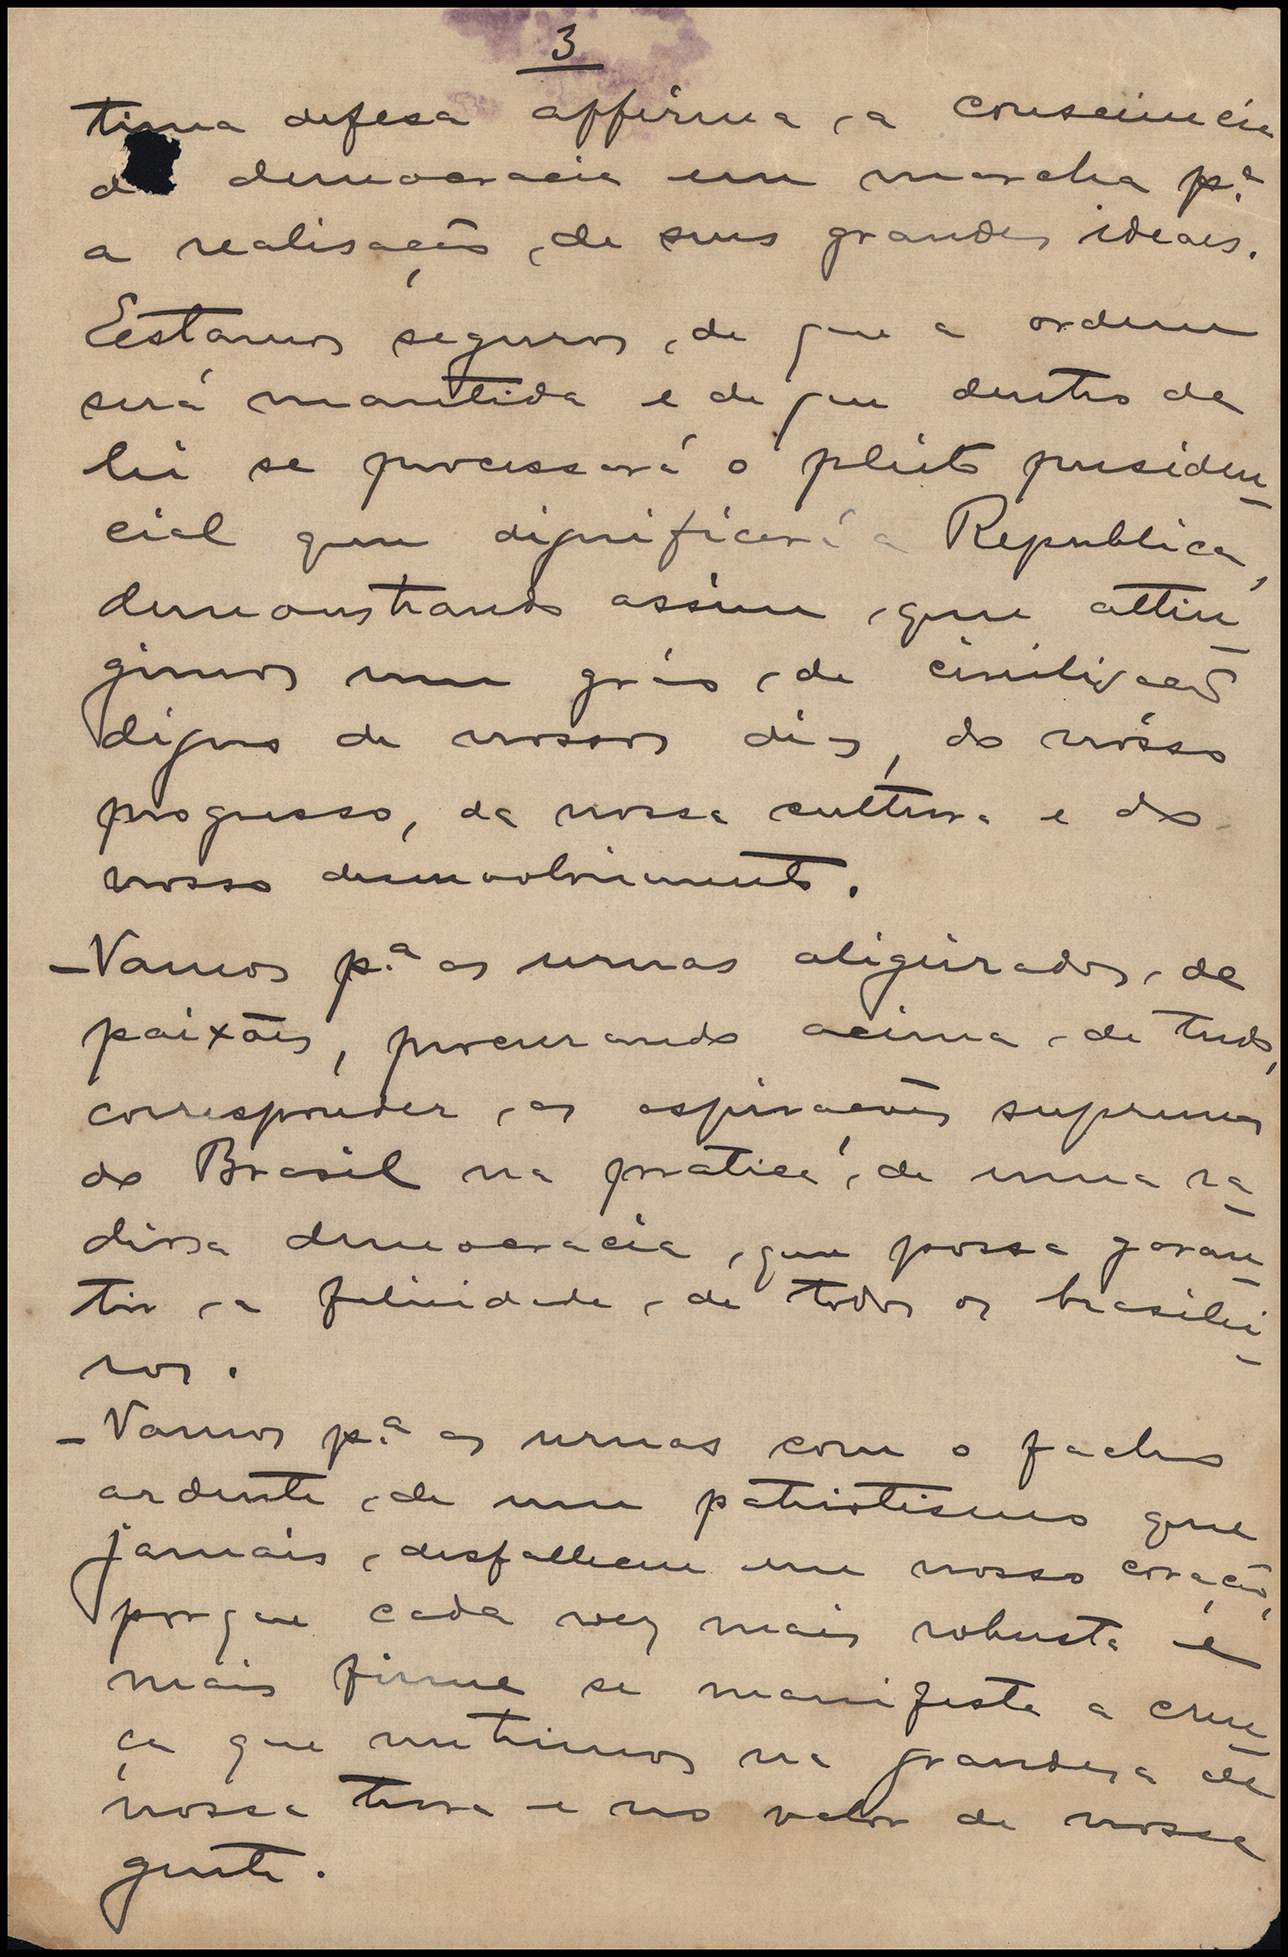 3
tima defesa affirma, a consciencia
d democracia em marcha p.ª
a realisação, de seus grandes ideaes.
Estamos seguros, de que a ordem
será mantida e de que dentro da
lei se processará o pleito presiden-
cial que dignificará a Republica,
demonstrando assim, que attin-
gimos um gráo, de civilização
digno de nossos dias, do nósso
progresso, da nossa cultura e do
nosso desenvolvimento.
- Vamos p.ª as urnas aligeirados, de
paixões, procurando acima, de tudo,
corresponder, as aspirações supremas
do Brasil na pratica, de uma
democracia, que possa garan-
tir, a felicidade, de todos os brasilei-
ros.
- Vamos p.ª as urnas com o facho
ardente, de um patriotismo que
jamais, desfallece em nosso coração,
porque cada vez mais robusta e
mais firme se manifesta a cren-
ça que nutrimos na grandeza de
nossa terra e no valor de nossa
gente.